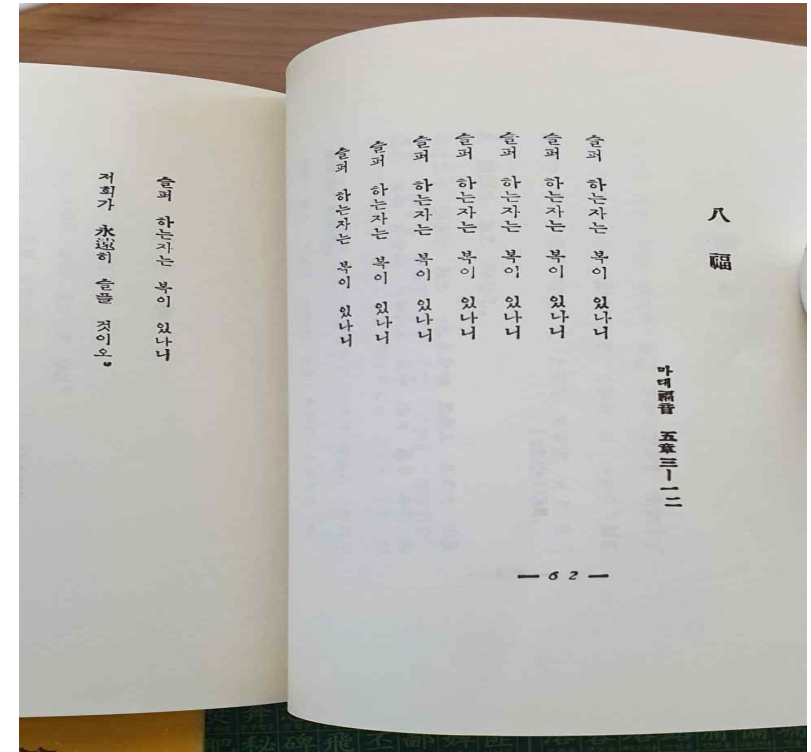 八 福
마태福音 五章三ㅡ一二
슬퍼 하는자는 복이 있나니
슬퍼 하는자는 복이 있나니
슬퍼 하는자는 복이 있나니
슬퍼 하는자는 복이 있나니
슬퍼 하는자는 복이 있나니
슬퍼 하는자는 복이 있나니
슬퍼 하는자는 복이 있나니
— 62 —
슬퍼 하는자는 복이 있나니
저희가 永遠히 슬플 것이오。
秘碑飛